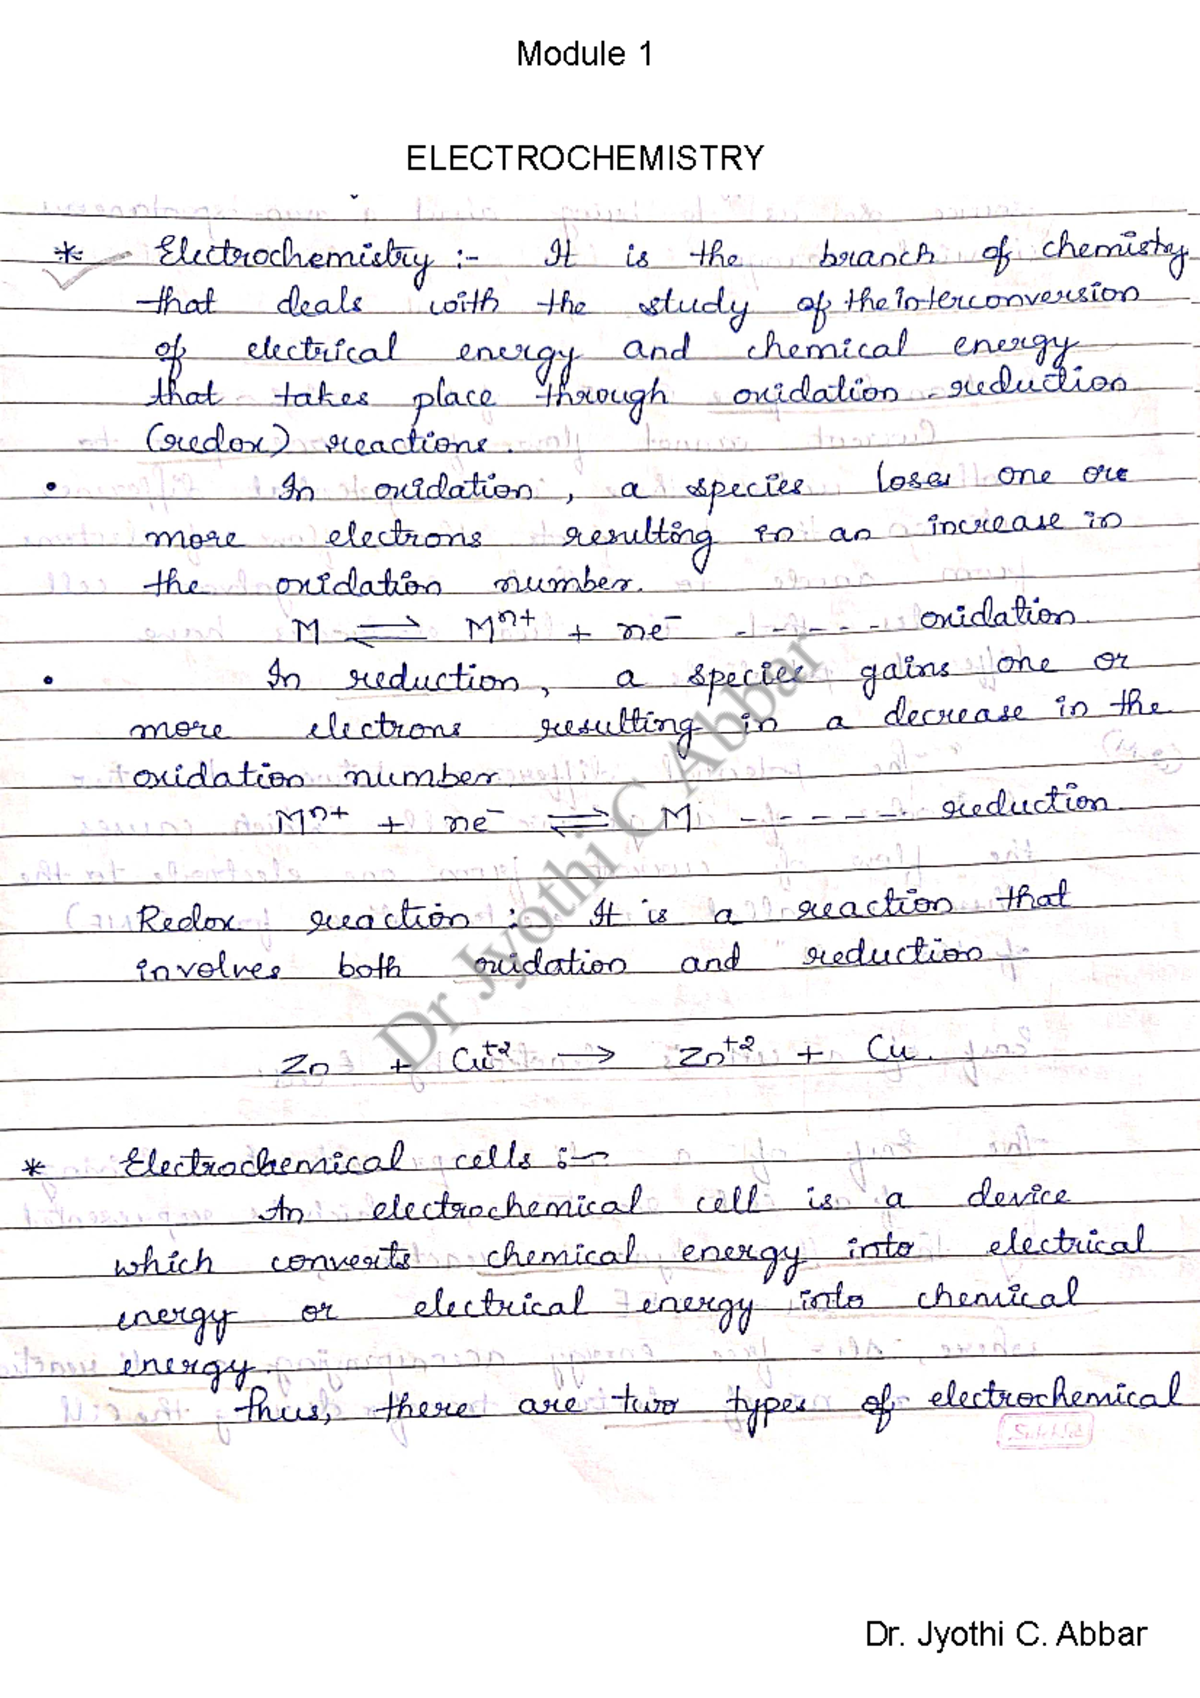 Module 1
ELECTROCHEMISTRY
* Electrochemistry :- It is the branch of chemistry
that deals with the study of the interconversion
of electrical energy and chemical energy
that takes place through oxidation-reduction
(redox) reactions.
• In oxidation, a species loses one or
more electrons resulting in an increase in
the oxidation number.
M ⇌ Mⁿ⁺ + ne⁻ ------ oxidation.
• In reduction, a species gains one or
more electrons resulting in a decrease in the
oxidation number.
Mⁿ⁺ + ne⁻ ⇌ M ------ reduction.
Redox reaction :- It is a reaction that
involves both oxidation and reduction
Zn + Cu⁺² → Zn⁺² + Cu.
* Electrochemical cells :-
An electrochemical cell is a device
which converts chemical energy into electrical
energy or electrical energy into chemical
energy.
Thus, there are two types of electrochemical
Dr Jyothi C Abbar
Dr. Jyothi C. Abbar